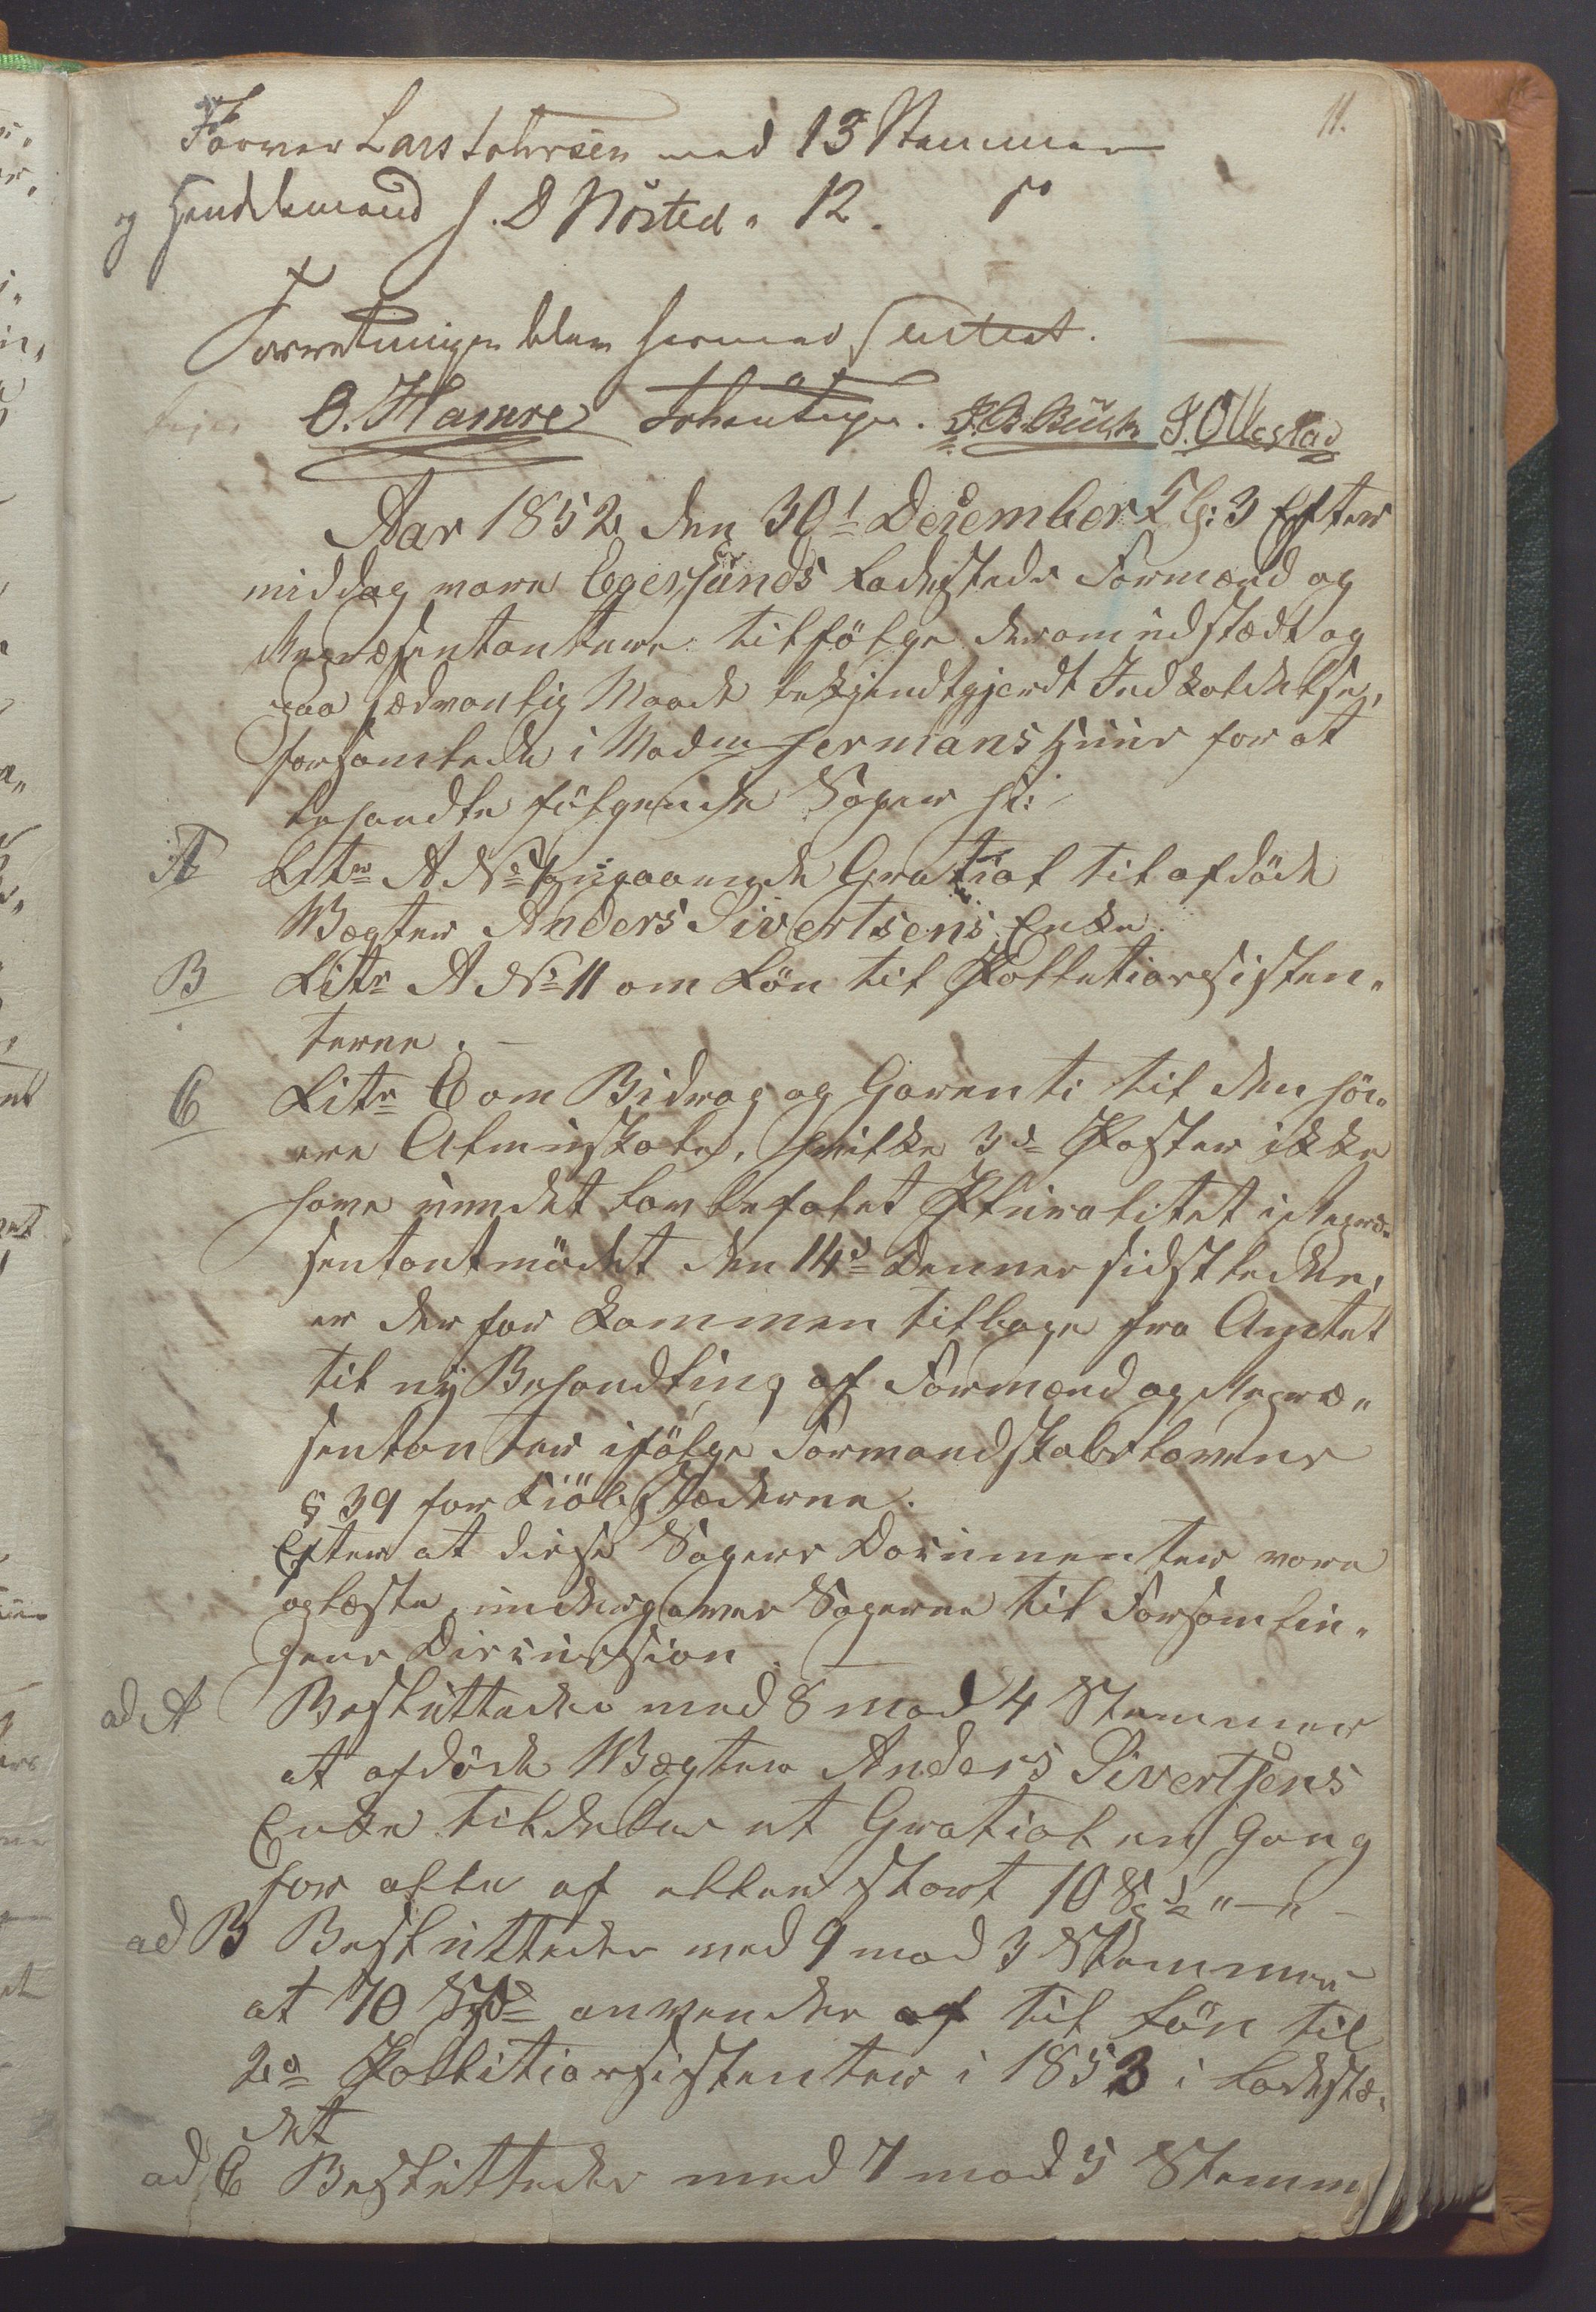 11.
Farver Lars Tohrsen med 13 Stemmer
og Handelsmand J. D Nösted " 12. do
Forretningen blev hermed sluttet.
O. Hamre J. B. Büch J. Ollestad
Aar 1852 den 30t December Kl: 3 Efter
middag vare Egersunds Ladesteds Formænd og
Repræsentantere tilfölge derom udstædt og
paa sædvanlig Maade bekjendtgjordt Indkaldelse,
forsamlede i Madm Hermans Huus for at
behandle fölgende Sager sc:
A Litr A No angaaende Gratial til afdöde
Vægter Anders Sivertsens Enke.
B Litr A No 11 om Lön til Politiassisten"
terne. —
C Litr C om Bidrag og Garenti til den höi"
ere Almuskole, hvilke 3de Poster ikke
have vundet lovbefalet Pluralitet i Repræ"
sentantmödet den 14de Dennes sidstleden,
er derfor kommen tilbage fra Amtet
til nÿ Behandling af Formænd og Repræ"
sentanter ifölge Formandskabslovens
§ 39 for Kiöbstæderne.
Efter at disse Sagers Documenter vare
oplæste, undergaves Sagerne til Forsamlin"
gens Discussion.
ad A Besluttedes med 8 mod 4 Stemmer
at afdöde Vægter Anders Sivertsens
Enke tildeles et Gratial en Gang
for alle af stort 10 Spd " — " —
ad B Besluttedes med 9 mod 3 Stemmer
at 70 Spd anvendes af til Lön til
2de Politiassistenter i 1853 i Ladestæ"
det
ad C Besluttedes med 7 mod 5 Stemm